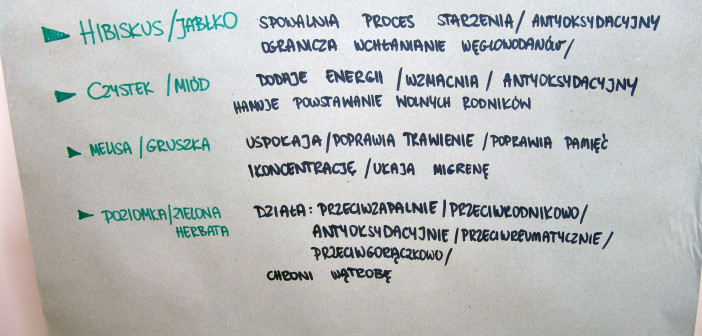 HIBISKUS/JABŁKO SPOWALNIA PROCES STARZENIA/ANTYOKSYDACYJNY
OGRANICZA WCHŁANIANIE WĘGLOWODANÓW/
CZYSTEK/MIÓD DODAJE ENERGII/WZMACNIA/ANTYOKSYDACYJNY
HAMUJE POWSTAWANIE WOLNYCH RODNIKÓW
MELISA/GRUSZKA USPOKAJA/POPRAWIA TRAWIENIE/POPRAWIA PAMIĘĆ
I KONCENTRACJĘ/UKAJA MIGRENĘ
POZIOMKA/ZIELONA HERBATA DZIAŁA: PRZECIWZAPALNIE/PRZECIWRODNIKOWO/
ANTYOKSYDACYJNIE/PRZECIWREUMATYCZNIE/
PRZECIWGORĄCZKOWO/
CHRONI WĄTROBĘ